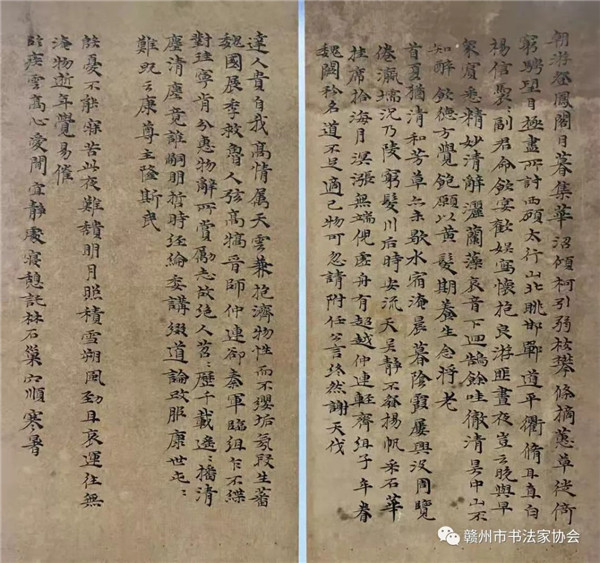 朝游登鳳閣日暮集華沼傾柯引弱枝攀條摘蕙草徙倚
窮騁望目極盡所討西顧太行山北眺邯鄲道平衢脩且直白
楊信裊副君命飲宴歡娛寫懷抱良游匪晝夜豈云晚與早
衆賓悉精妙清辭灑蘭藻哀音下迴鵠餘哇徹清昊中山不
知醉飲德方覺飽願以黃髮期養生念將老
首夏猶清和芳草亦未歇水宿淹晨暮陰霞屢興沒周覽
倦瀛壖況乃陵窮髮川后時安流天吳靜不發揚帆采石華
挂席拾海月溟漲無端倪虛舟有超越仲連輕齊組子牟眷
魏闕矜名道不足適己物可忽請附任公言終然謝天伐
達人貴自我高情屬天雲兼抱濟物性而不纓垢氛段生蕃
魏國展季救魯人弦高犒晉師仲連卻秦軍臨組乍不緤
對珪寧肯分惠物辭所賞勵志故絕人苕〻歷千載遙〻播清
塵清塵竟誰嗣明哲時經綸委講綴道論改服康世屯〻
難既云康尊主隆斯民
殷憂不能寐苦此夜難頹明月照積雪朔風勁且哀運往無
淹物逝年覺易催
臥疾雲高心愛閒宜靜處寢憩託林石巢穴順寒暑
赣州市书法家协会